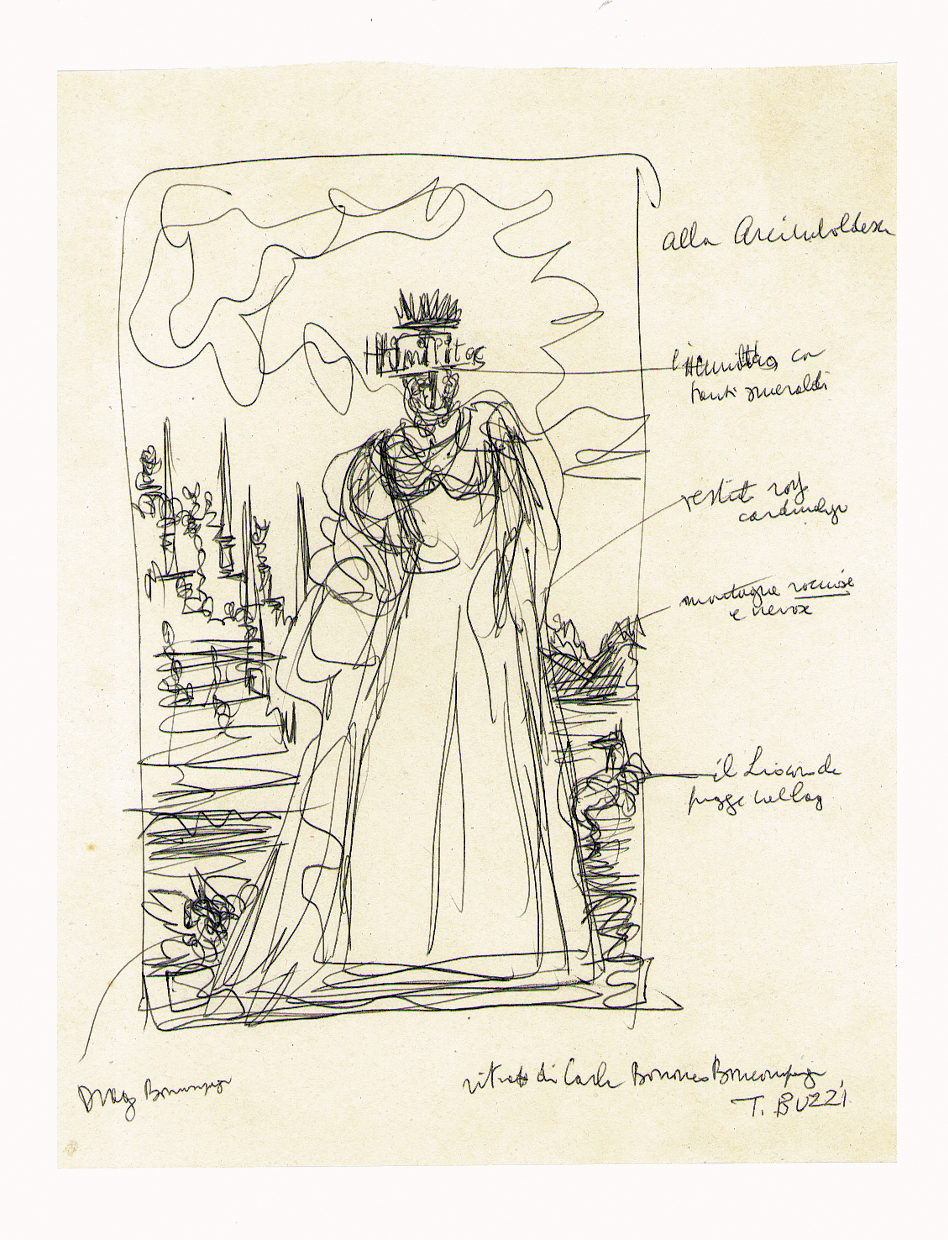 alla Arcimboldesca
Humilitas
l'Humilitas con
tanti smeraldi
vestito rosso
cardinalizio
montagne rocciose
e nevose
il Liocorno che
fugge
Drago Boncompagni
ritratto di Carlo Borromeo Boncompagni
T. BUZZI